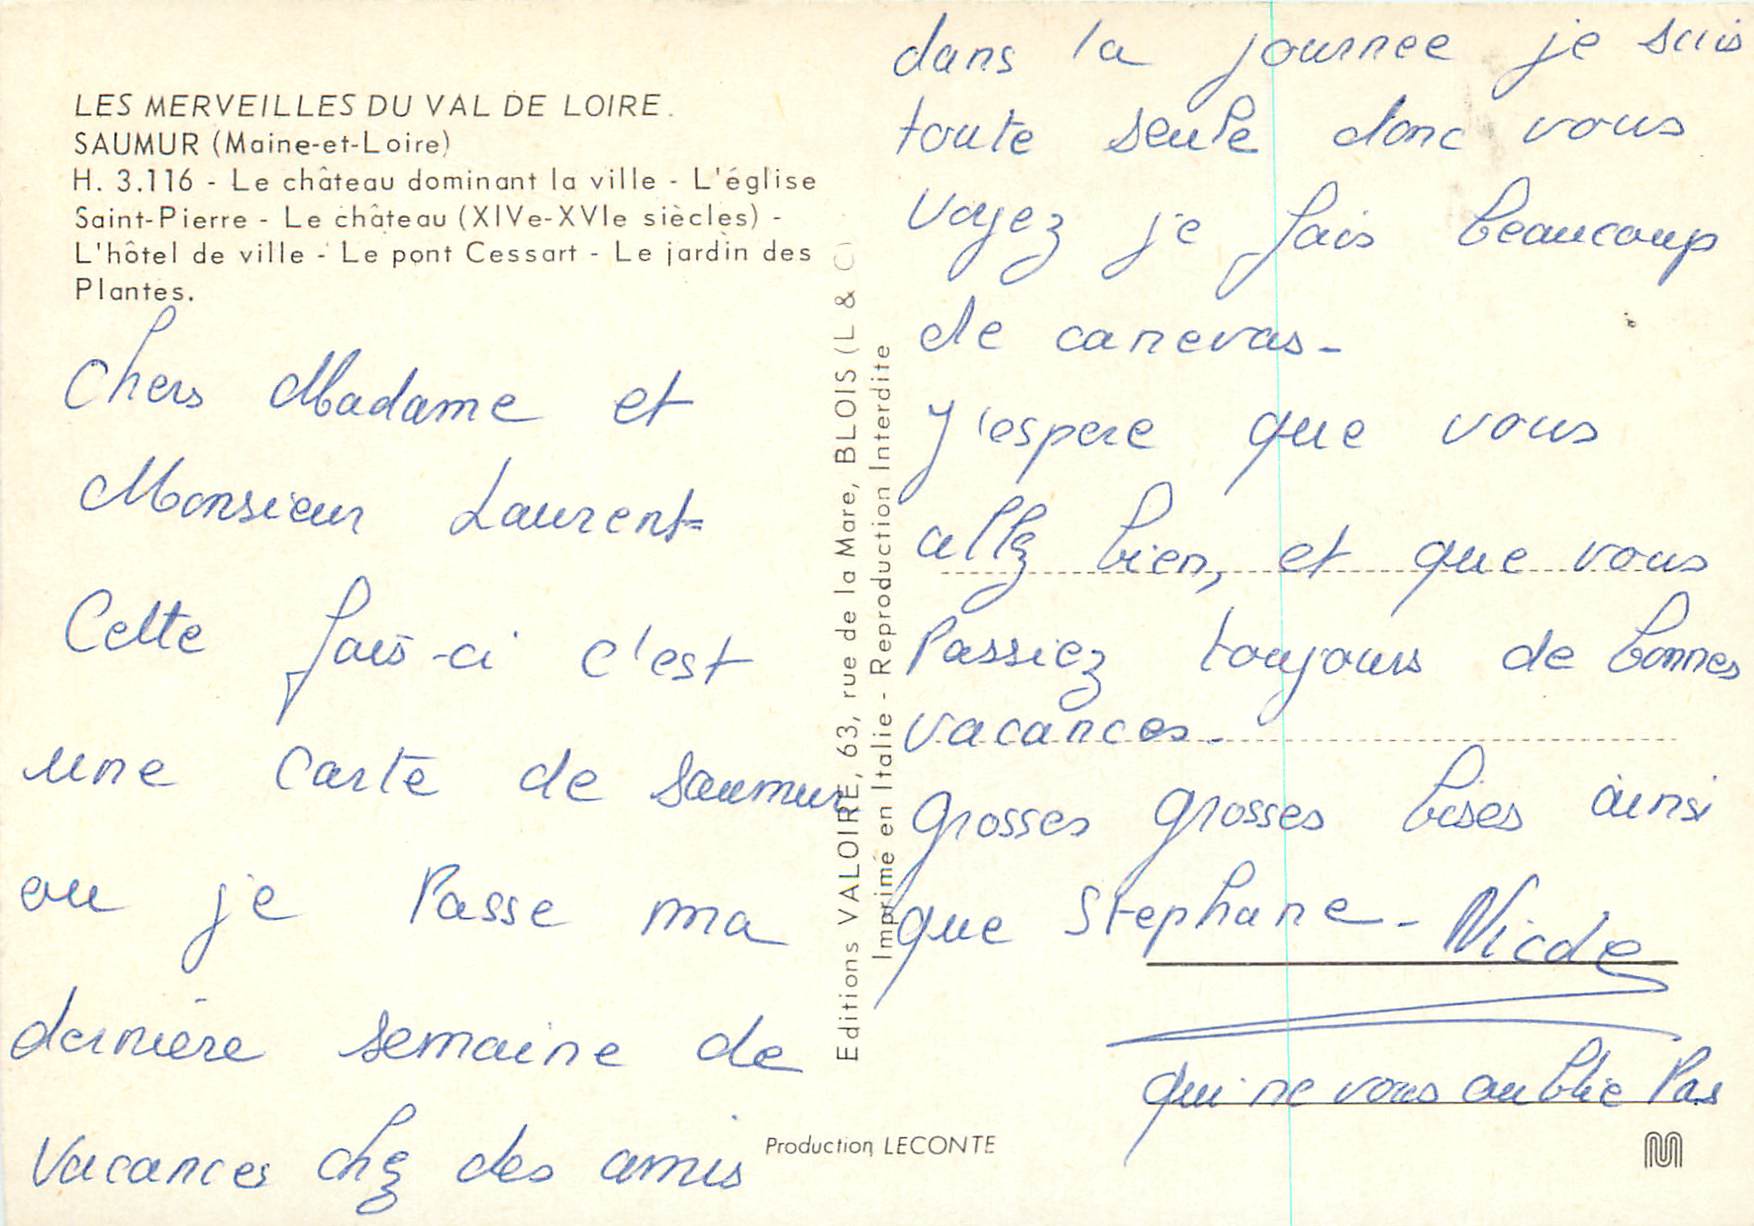 LES MERVEILLES DU VAL DE LOIRE.
SAUMUR (Maine-et-Loire)
H. 3.116 - Le château dominant la ville - L'église
Saint-Pierre - Le château (XIVe-XVIe siècles) -
L'hôtel de ville - Le pont Cessart - Le jardin des
Plantes.
Chers Madame et
Monsieur Laurent
Cette fois-ci c'est
une Carte de Saumur
ou je Passe ma
dernière semaine de
Vacances chez des amis
Editions VALOIRE, 63, rue de la Mare, BLOIS (L & C)
Imprimé en Italie - Reproduction Interdite
dans la journee je suis
toute seule donc vous
voyez je fais beaucoup
de canevas -
J'espere que vous
allez bien, et que vous
Passiez toujours de bonnes
vacances -
grosses grosses bises ainsi
que Stephane - Nicole
qui ne vous oublie Pas
Production LECONTE
M